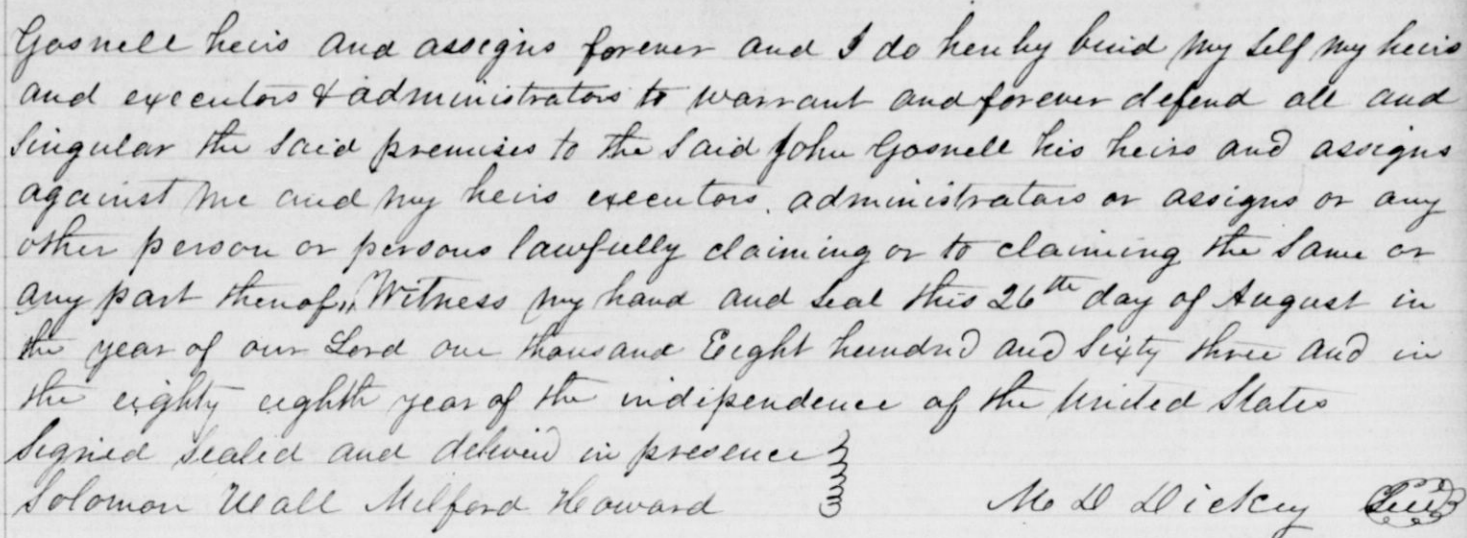 Gosnell heirs and assigns forever and I do hereby bind my self my heirs
and executors & administrators to warrant and forever defend all and
Singular the said premises to the said John Gosnell his heirs and assigns
against me and my heirs executors, administrators or assigns or any
other person or persons lawfully claiming or to claiming the same or
any part thereof,, Witness my hand and seal this 26th day of August in
the year of our Lord one thousand Eight hundred and Sixty three and in
the eighty eighth year of the independence of the United States
Signed Sealed and deliveed in presence
Solomon Wall Milford Howard M D Dickey Seal